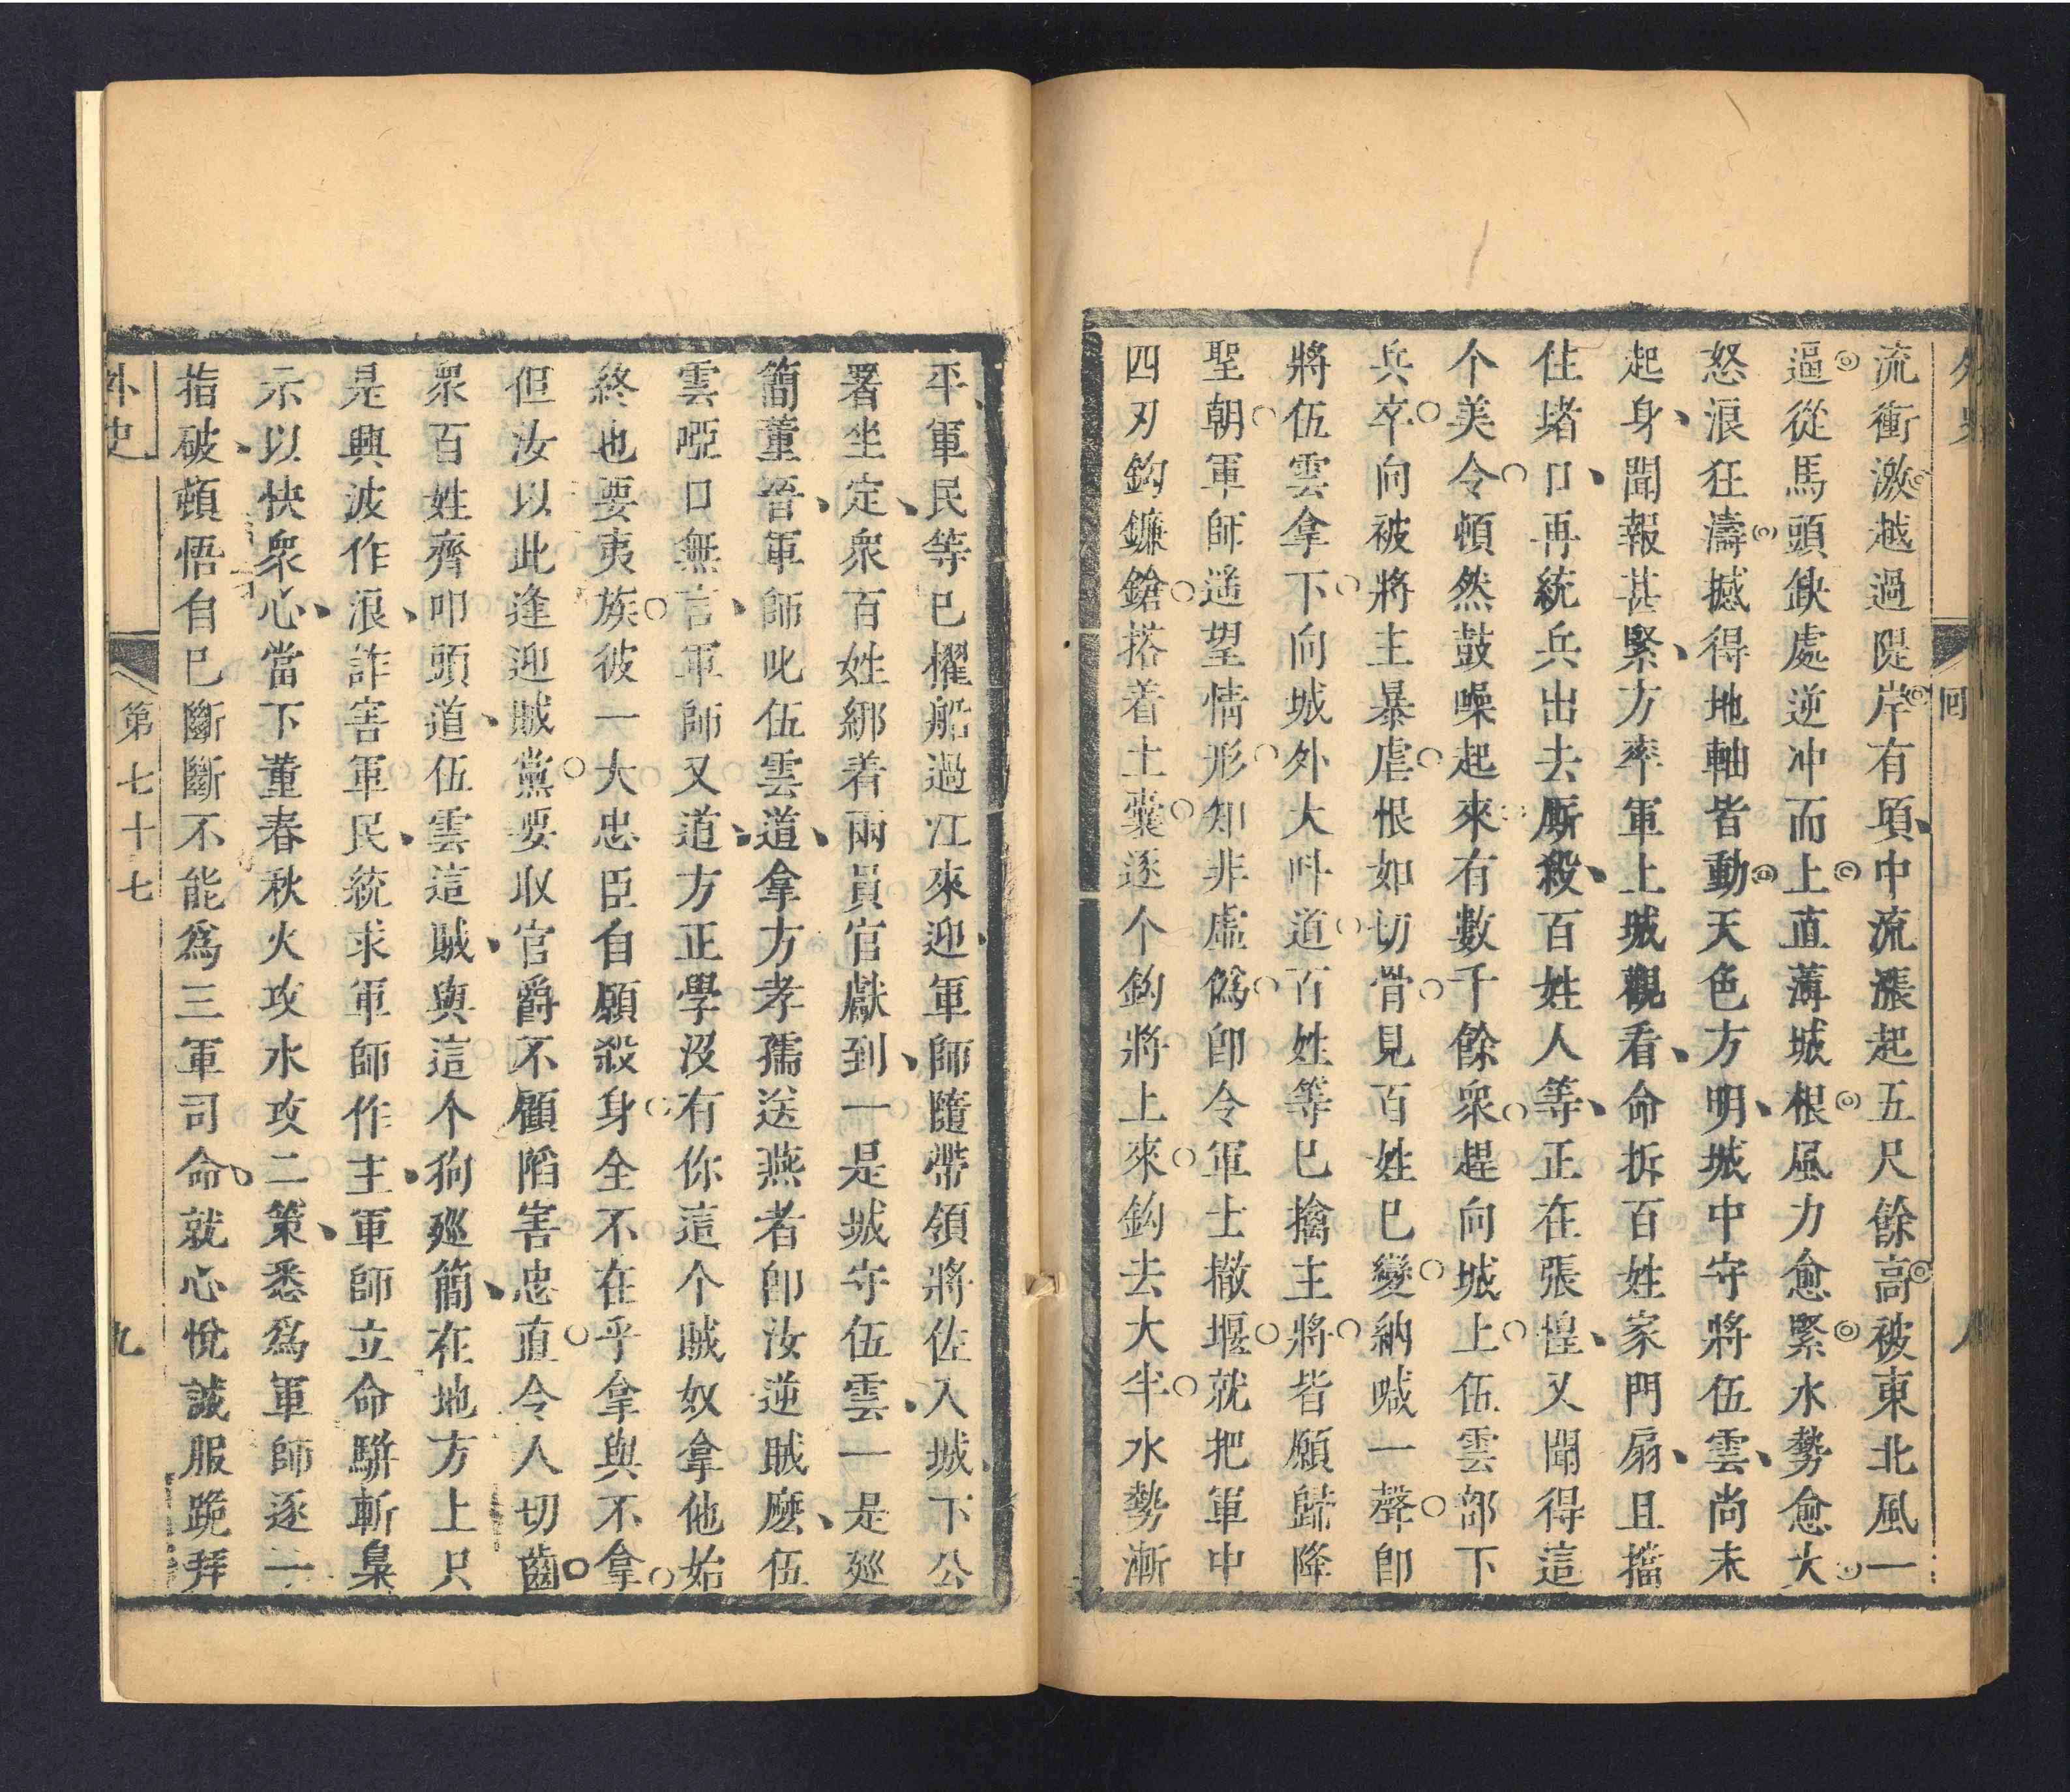 外史
回
八
流衝激越過隄岸有項中流漲起五尺餘高被東北風一
逼從馬頭缺處逆冲而上直薄城根風力愈緊水勢愈大
怒浪狂濤撼得地軸皆動天色方明城中守將伍雲尚未
起身聞報甚緊方率軍上城觀看命拆百姓家門扇且擋
住堵口再統兵出去厮殺百姓人等正在張惶又聞得這
个美令頓然鼓噪起來有數千餘衆趕向城上伍雲部下
兵卒向被將主暴虐恨如切骨見百姓已變納喊一聲卽
將伍雲拿下向城外大呌道百姓等已擒主將皆願歸降
聖朝軍師遥望情形知非虛僞卽令軍士撤堰就把軍中
四刃鈎鐮鎗搭着土囊逐个鈎將上來鈎去大半水勢漸
平軍民等已櫂船過江來迎軍師隨帶領將佐入城下公
署坐定衆百姓綁着兩員官獻到一是城守伍雲一是廵
簡董吾軍師叱伍雲道拿方孝孺送燕者卽汝逆賊麽伍
雲啞口無言軍師又道方正學沒有你這个賊奴拿他始
終也要夷族彼一大忠臣自願殺身全不在乎拿與不拿
但汝以此逢迎賊黨要収官爵不顧陷害忠直令人切齒
衆百姓齊叩頭道伍雲這賊與這个狗廵簡在地方上只
是興波作浪詐害軍民統求軍師作主軍師立命駢斬梟
示以快衆心當下董春秋火攻水攻二策悉爲軍師逐一
指破頓悟自已斷斷不能爲三軍司命就心悅誠服跪拜
外史
第七十七
九